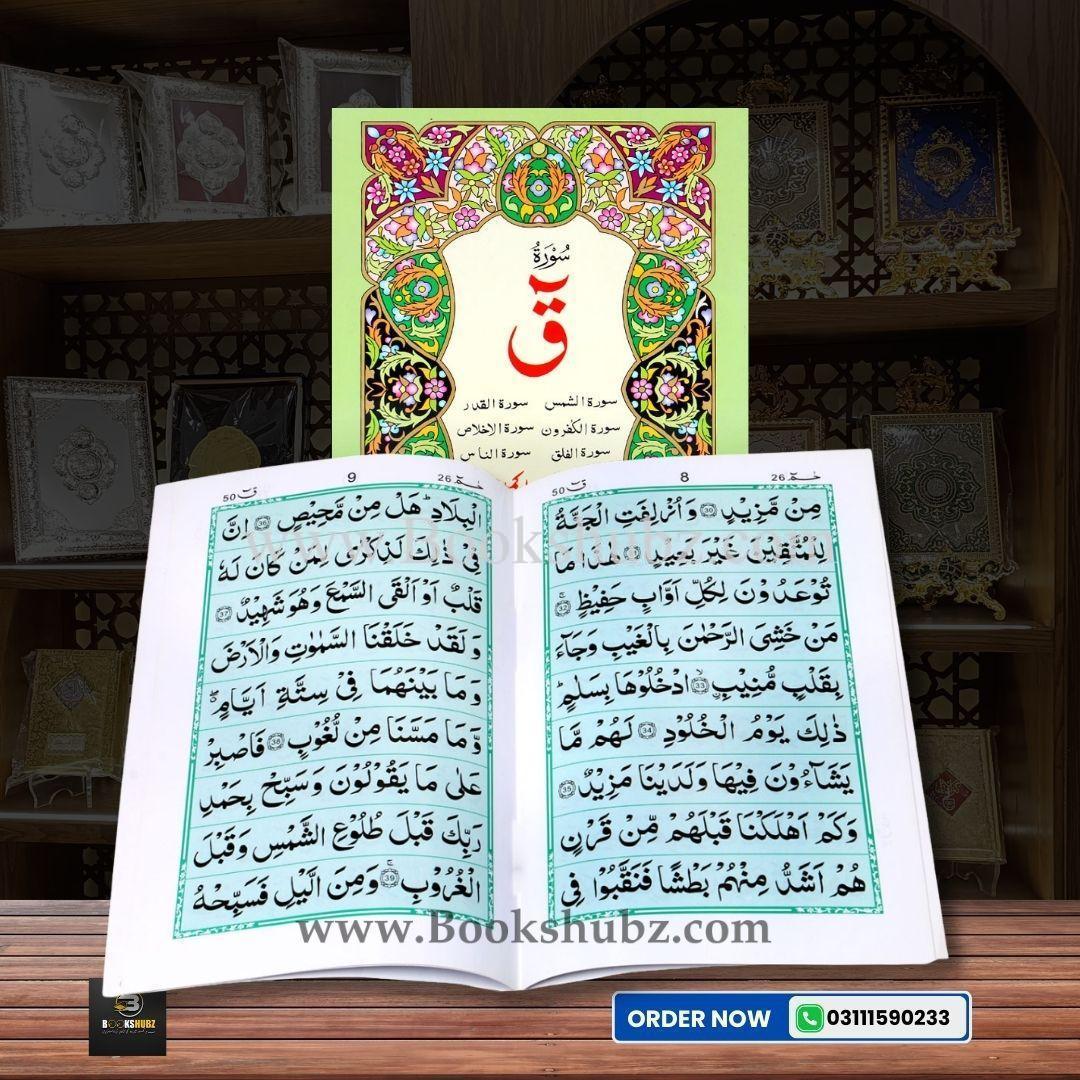 سُوْرَةُ
قٓ
سورة الشمس سورة القدر
سورة الكٰفرون سورة الاخلاص
سورة الفلق سورة الناس
حٰمٓ 26
8
قٓ 50
مِنْ مَّزِيْدٍ 30 وَاُزْلِفَتِ الْجَنَّةُ
لِلْمُتَّقِيْنَ غَيْرَ بَعِيْدٍ 31 هٰذَا مَا
تُوْعَدُوْنَ لِكُلِّ اَوَّابٍ حَفِيْظٍ ۚ 32
مَنْ خَشِيَ الرَّحْمٰنَ بِالْغَيْبِ وَجَآءَ
بِقَلْبٍ مُّنِيْبِ ۙ 33 ادْخُلُوْهَا بِسَلٰمٍ ؕ
ذٰلِكَ يَوْمُ الْخُلُوْدِ 34 لَهُمْ مَّا
يَشَآءُوْنَ فِيْهَا وَلَدَيْنَا مَزِيْدٌ 35
وَكَمْ اَهْلَكْنَا قَبْلَهُمْ مِّنْ قَرْنٍ
هُمْ اَشَدُّ مِنْهُمْ بَطْشًا فَنَقَّبُوْا فِي
حٰمٓ 26
9
قٓ 50
الْبِلَادِ ؕ هَلْ مِنْ مَّحِيْصٍ 36 اِنَّ
فِيْ ذٰلِكَ لَذِكْرٰى لِمَنْ كَانَ لَهٗ
قَلْبٌ اَوْ اَلْقَى السَّمْعَ وَهُوَ شَهِيْدٌ 37
وَلَقَدْ خَلَقْنَا السَّمٰوٰتِ وَالْاَرْضَ
وَمَا بَيْنَهُمَا فِيْ سِتَّةِ اَيَّامٍ ۖ
وَّمَا مَسَّنَا مِنْ لُّغُوْبٍ 38 فَاصْبِرْ
عَلٰى مَا يَقُوْلُوْنَ وَسَبِّحْ بِحَمْدِ
رَبِّكَ قَبْلَ طُلُوْعِ الشَّمْسِ وَقَبْلَ
الْغُرُوْبِ ۚ 39 وَمِنَ الَّيْلِ فَسَبِّحْهُ
www.Bookshubz.com
www.Bookshubz.com
BOOKSHUBZ
ORDER NOW 03111590233